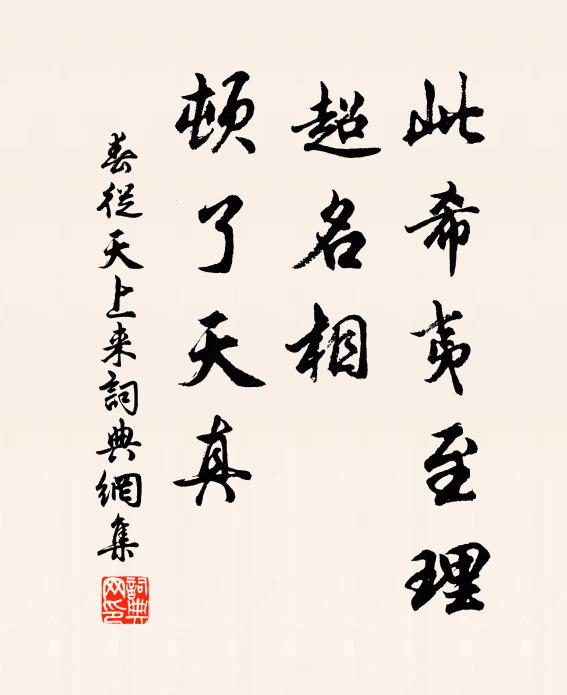 此希夷至理
超名相
顿了天真
春從天上来詞典網集
詞典网印